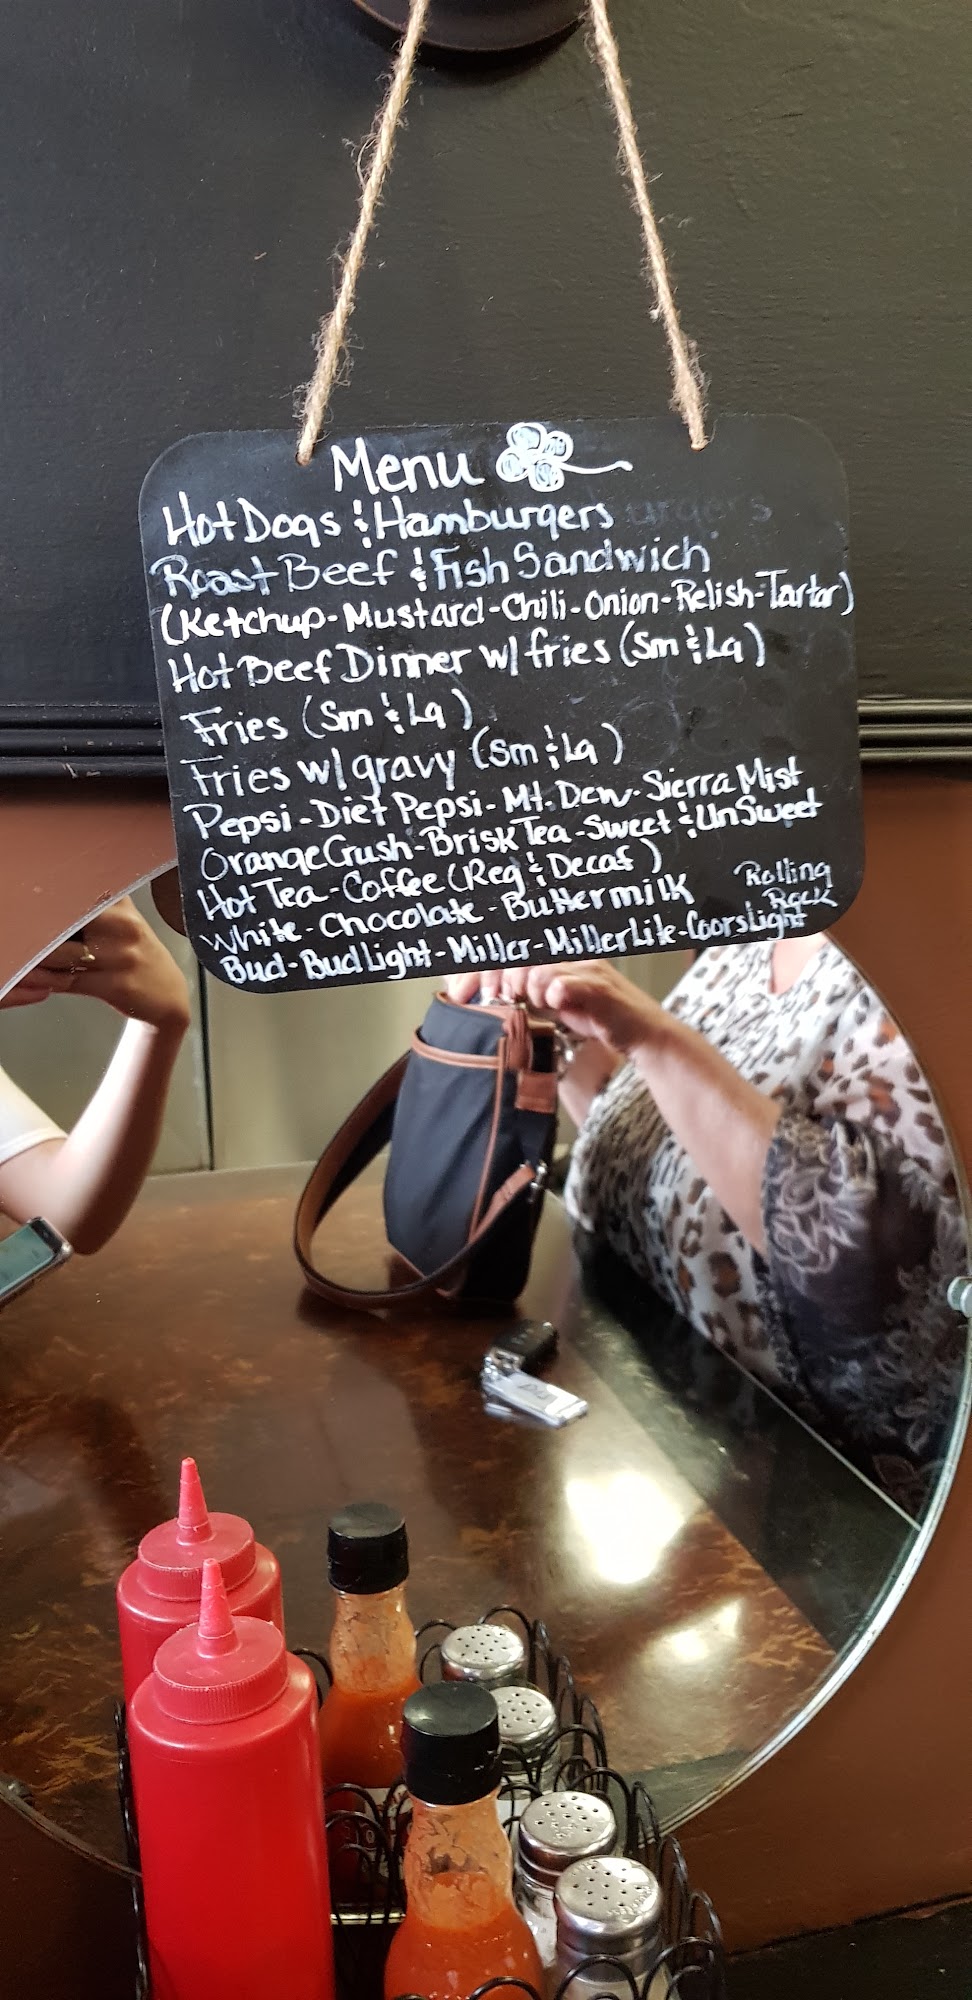 Menu
Hot Dogs & Hamburgers
Roast Beef & Fish Sandwich
(Ketchup-Mustard-Chili-Onion-Relish-Tartar)
Hot Beef Dinner w/ fries (Sm & La)
Fries (Sm & La)
Fries w/ gravy (Sm & La)
Pepsi-Diet Pepsi-Mt. Dew-Sierra Mist
Orange Crush-Brisk Tea-Sweet & UnSweet
Hot Tea-Coffee (Reg & Decaf)
White-Chocolate-Buttermilk
Rolling
Rock
Bud-Bud Light-Miller-Miller Lite-Coors Light